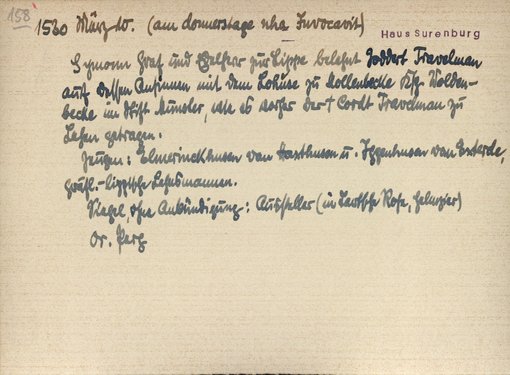 158
1530 März 10. (am donnerstage nha Invocavit)
Haus Surenburg
Symonn Graf und Edelherr zur Lippe belehnt Joddert Travelman
auf dessen Ansinnen mit dem Lohuse zu Mollenbecke Ksp. Wolden-
becke im Stift Münster, wie es vorher der † Cordt Travelman zu
Lehen getragen.
Zeugen: Elmerinckhusen van Haxthusen u. Iggenhusen van Exterde,
gräfl.-lippische Lehnsmannen.
Siegel, ohne Ankündigung: Aussteller (in Lippische Rose, Helmzier)
Or. Perg